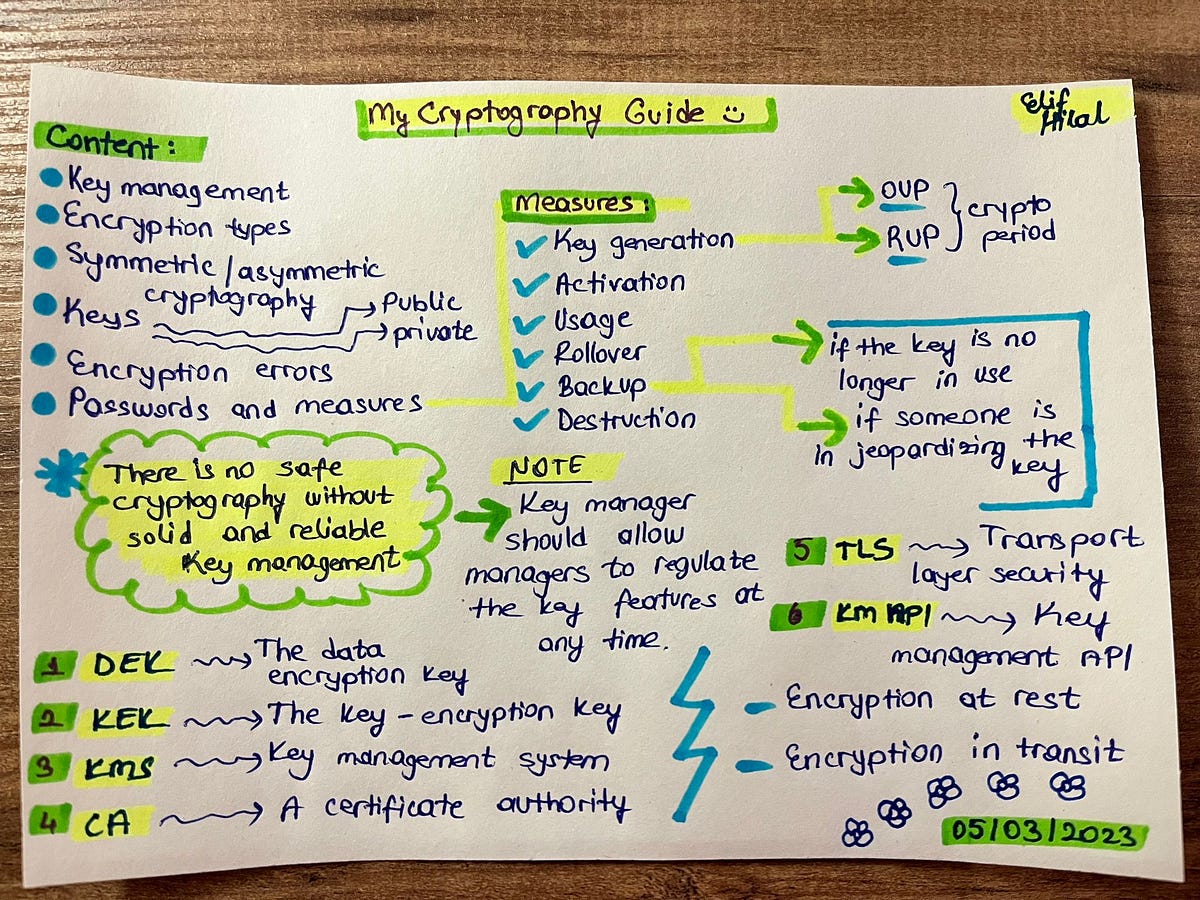 My Cryptography Guide
Elif
Hilal
Content:
Key management
Encryption types
Symmetric/asymmetric
cryptography
Keys
Public
private
Encryption errors
Passwords and measures
Measures:
Key generation
Activation
Usage
Rollover
Backup
Destruction
OUP
RUP
crypto
period
if the key is no
longer in use
if someone is
in jeopardizing the
key
There is no safe
cryptography without
solid and reliable
Key management
NOTE
Key manager
should allow
managers to regulate
the key features at
any time.
1 DEK The data
encryption key
2 KEK The key-encryption key
3 KMS Key management system
4 CA A certificate authority
5 TLS Transport
layer security
6 KM API Key
management API
Encryption at rest
Encryption in transit
05/03/2023